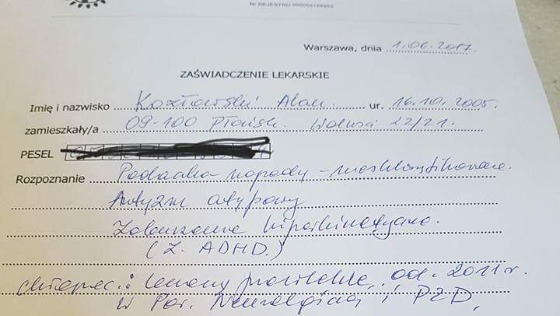 Warszawa, dnia 1.06.2017.
ZAŚWIADCZENIE LEKARSKIE
Imię i nazwisko Kozłowski Alan ur. 16.10.2005.
zamieszkały/a 09-100 Płońsk. 22/21.
PESEL
Rozpoznanie Padaczka - napady - niesklasyfikowane.
Autyzm atypowy
Zaburzenia hiperkinetyczne.
(Z. ADHD.)
chłopiec leczony od 2011 r.
w Por. Neurologicznej i PZP,